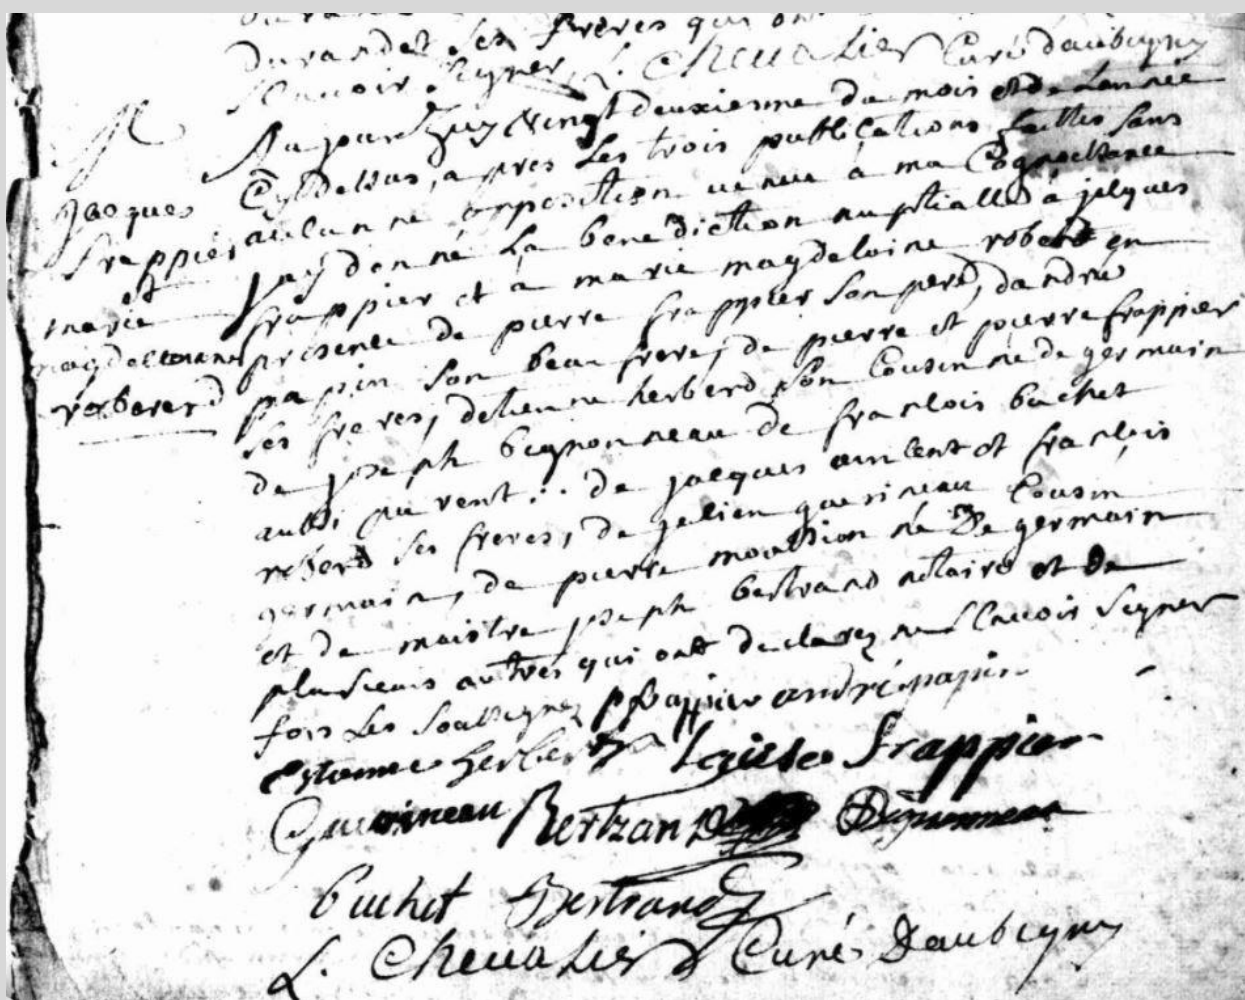 durandet ses freres qui ont
scavoir signer. L. Chevalier Curé daubigny
M
Jacques
frappier
et
marie
magdellenne
rorbererd
Aujourdhuy vingt deuxieme du mois et de lannée
Cy dessus, apres les trois publications faittes sans
aucunne opposition venue à ma Cognoissance
jay donné la benediction nuptialle à jacques
frappier et à marie magdelaine roberd en
presence de pierre frappier son pere, dandré
papin son beau frere, de pierre et pierre frappier
ses freres, detienne herberd son Cousin né de germain
de joseph begnonneau de francois buchet
aussi parent : de jacques vincent et francois
roberd ses freres, de jelien guerineau Cousin
germain, de pierre moussion né de germain
et de maistre joseph bertrand notaire et de
plusieurs autres qui ont declarez ne scavoir signer
fors les soussignez pfrappier andré papin
Estienne herberd Louise frappier
Guerineau Bertrand Begnonneau
buchet Bertrand
L. Chevalier Curé Daubigny